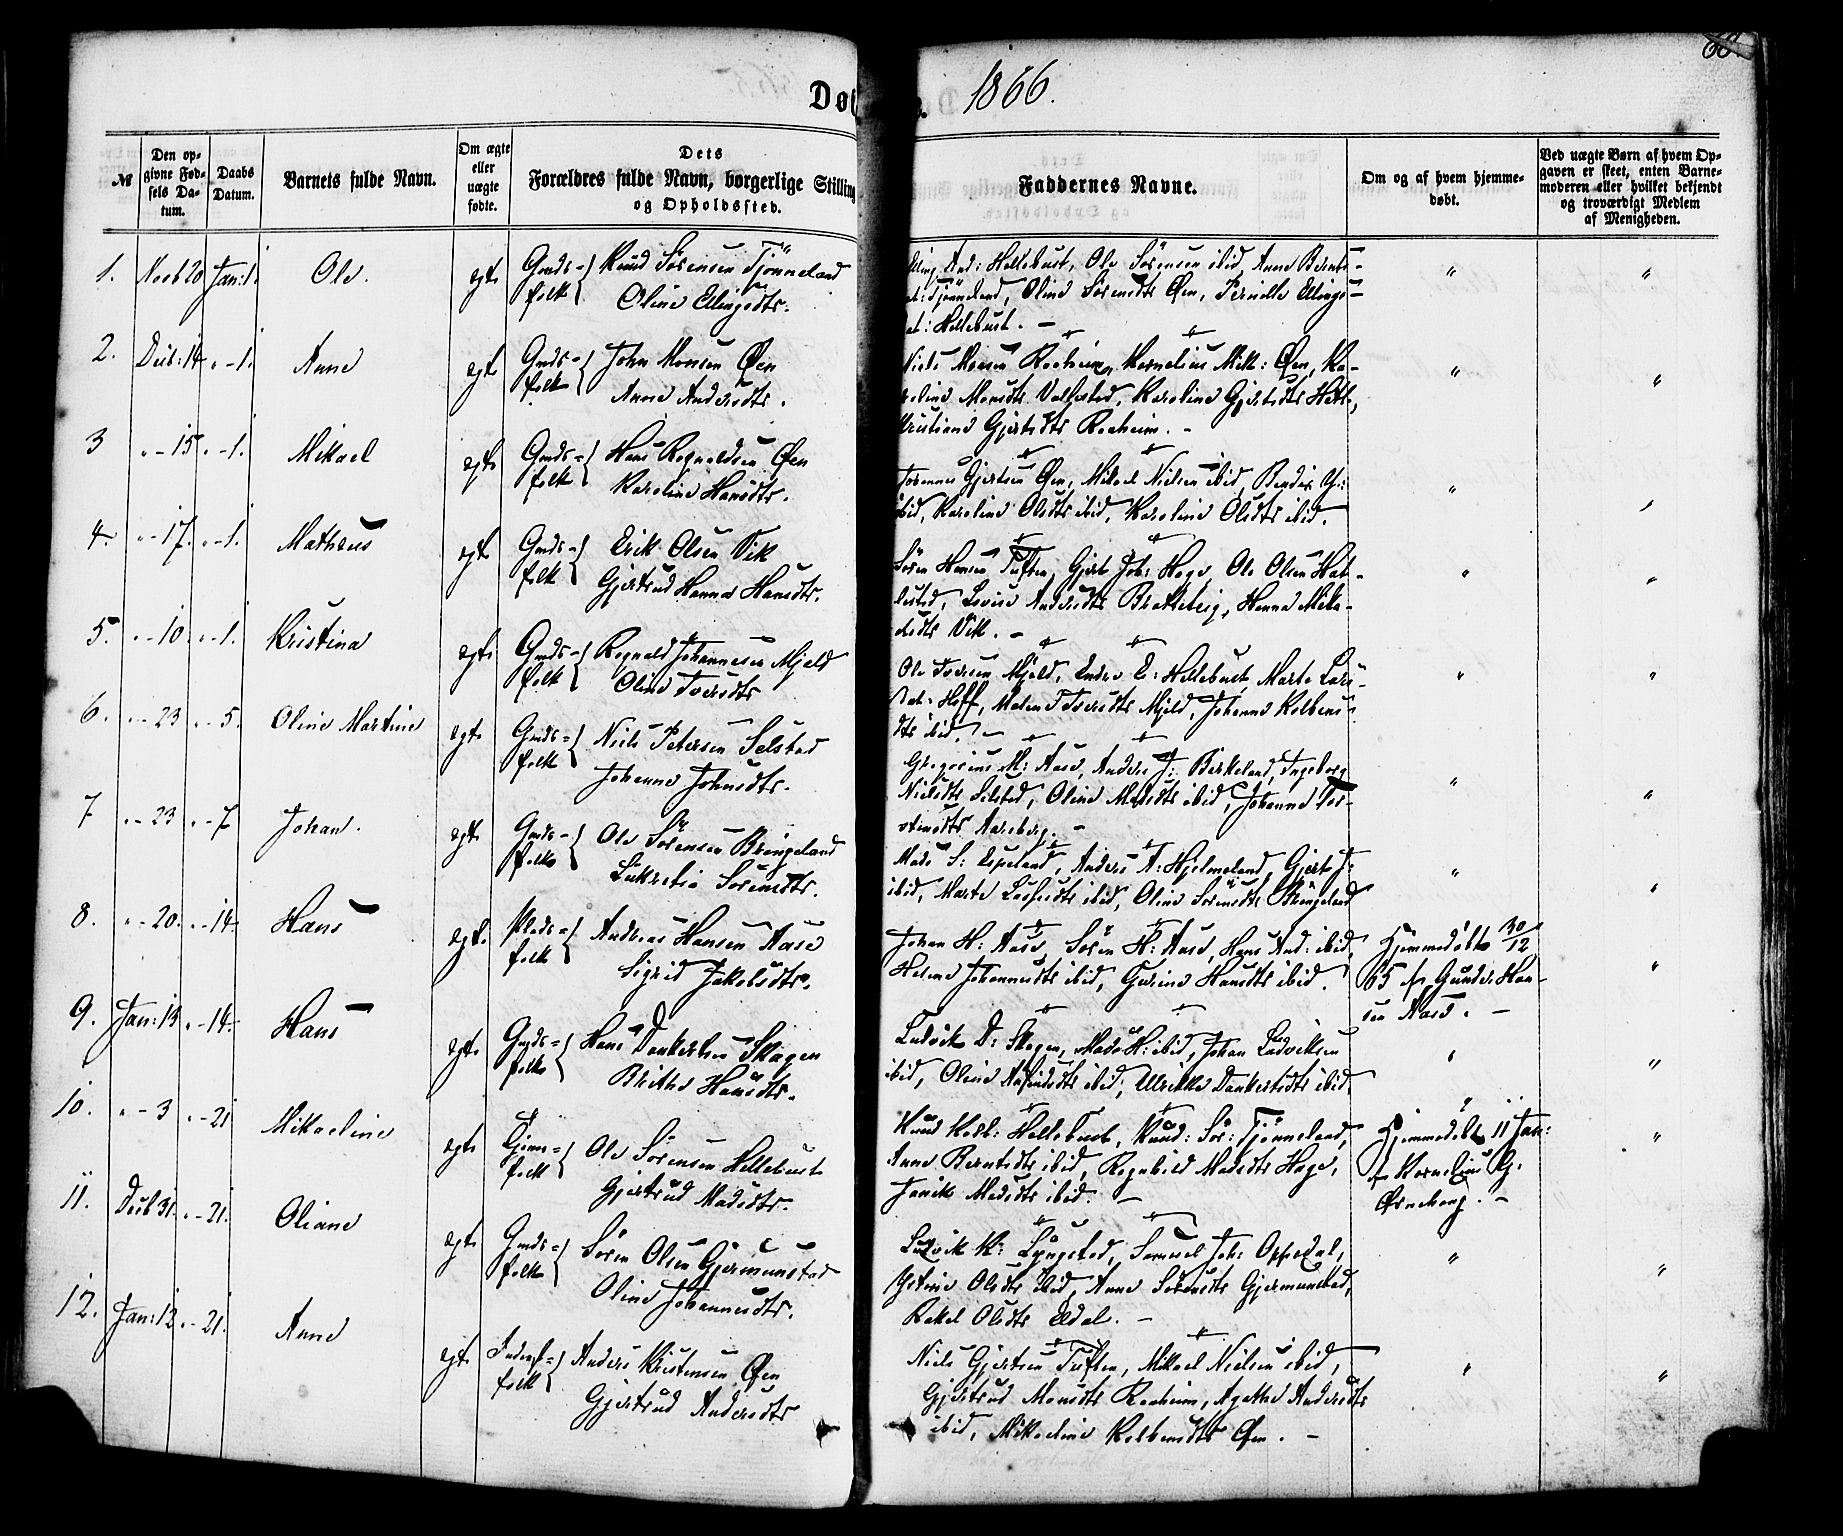 Dø
1866.
№
Den op-
givne Fød-
sels Da-
tum.
Daabs
Datum.
Barnets fulde Navn.
Om ægte
eller
uægte
fødte.
Dets
Forældres fulde Navn, borgerlige Stilling
og Opholdssted.
Faddernes Navne.
Om og af hvem hjemme-
døbt.
Ved uægte Børn af hvem Op-
gaven er skeet, enten Barne-
moderen eller hvilket bekjendt
og troværdigt Medlem
af Menigheden.
1. Novb 20 Jan: 1. Ole. egt. Gmds= { Knud Sörensen Tjönneland
folk { Oline Ellingsdtr.
And: Hellebust, Ole Sörensen ibid, Anne Bernts-
dat: Tjönneland, Oline Sörensdtr Øen, Pernille Ellings-
dat: Hellebust. -
2. Decb: 14 " - 1. Anne egt Gmds= { John Monsen Øen
folk { Anne Andersdtr.
Niels Monsen Roeheim, Kornelius Mik: Øen, Ka-
roline Monsdtr, Karoline Gjertsdtr
Kristiane Gjertsdtr Roeheim. -
3 " - 15 " - 1. Mikael egt. Gmds= { Hans Rognaldsen Øen
folk { Karoline Hansdtr.
Johannes Gjertsen Øen, Mikael Nielsen ibid,
ibid, Karoline Olsdtr ibid, Karoline Olsdtr ibid.
4. " - 17. " - 1. Matheus egt Gmds= { Erik Olsen Vik
folk { Gjertrud Hanna Hansdtr.
Sören Hansen Tuften, Gjert Joh: Hage, Ole Olsen Hat-
lested, Lovise Andersdtr Bratteteig, Hanna Mika-
elsdtr Vik. -
5. " - 10. " - 1. Kristina egt. Gmds= { Rognald Johannesen Mjeld
folk { Oline Iversdtr
Ole Iversen Mjeld, Endre E: Hellebust, Marte Lars-
dat: Hoff, Malen Iversdtr Mjeld, Johanne Kolbens-
dtr ibid. -
6. " - 23 " - 5. Oline Martine egt. Gmds= { Niels Petersen Selstad
folk { Johanne Johnsdtr.
Gregorius M: Aase, Anders J: Birkeland, Ingeborg
Nielsdtr Selstad, Oline Madsdtr ibid, Johanne Tor-
stensdtr Aareberg. -
7 " - 23 " - 7 Johan. egt. Gmds= { Ole Sörensen Bringeland
folk { Lukretia Sörensdtr.
Mads S: Espeland, Anders A: Hjelmeland, Gjert J:
ibid, Marte Lassesdtr ibid, Oline Sörensdtr Bringeland
8. " - 20. " - 14. Hans egt. Plads= { Andreas Hansen Aase
folk { Sigrid Jakobsdtr.
Johan H: Aase, Sören H: Aase, Hans And: ibid,
Helene Johannesdtr ibid, Gurine Hansdtr ibid.
Hjemmedöbt 30/12
65 af Gunder Han-
sen Aase. -
9. Jan: 13 " - 14. Hans egt. Gmds= { Hans Dankertsen Skagen
folk { Brithe Hansdtr.
Ludvik D: Skagen, Mads H: ibid, Johan Ludviksen
ibid, Oline ibid, Ullrikke Dankertsdtr ibid.
10. " - 3 " - 21 Mikaeline egt. Tjenes= { Ole Sörensen Hellebust
folk { Gjertrud Madsdtr.
Knud Kolb: Hellebust, Knud: Sör: Tjönneland,
Anne Berntsdtr ibid, Rognhild Madsdtr Hage,
Janik Madsdtr ibid. -
Hjemmedöbt 11 Jan:
af Kornelius G.
Ørneberg. -
11. Decb 31. " - 21. Oliane egt. Gmds= { Sören Olsen Gjermunstad
folk { Oline Johannesdtr.
Ludvik K: Lyngstad, Samuel Joh: Oppedal,
Olsdtr ibid, Anne Sörensdtr Gjermunstad,
Rakel Olsdtr Eldal. -
12. Jan: 12 " - 21. Anne egt. Inders= { Anders Kristensen Øen
folk { Gjertrud Andersdtr
Niels Gjertsen Tuften, Mikael Nielsen ibid,
Gjertrud Monsdtr Roeheim, Agathe Andersdtr
ibid, Mikaeline Kolbensdtr Øen. -